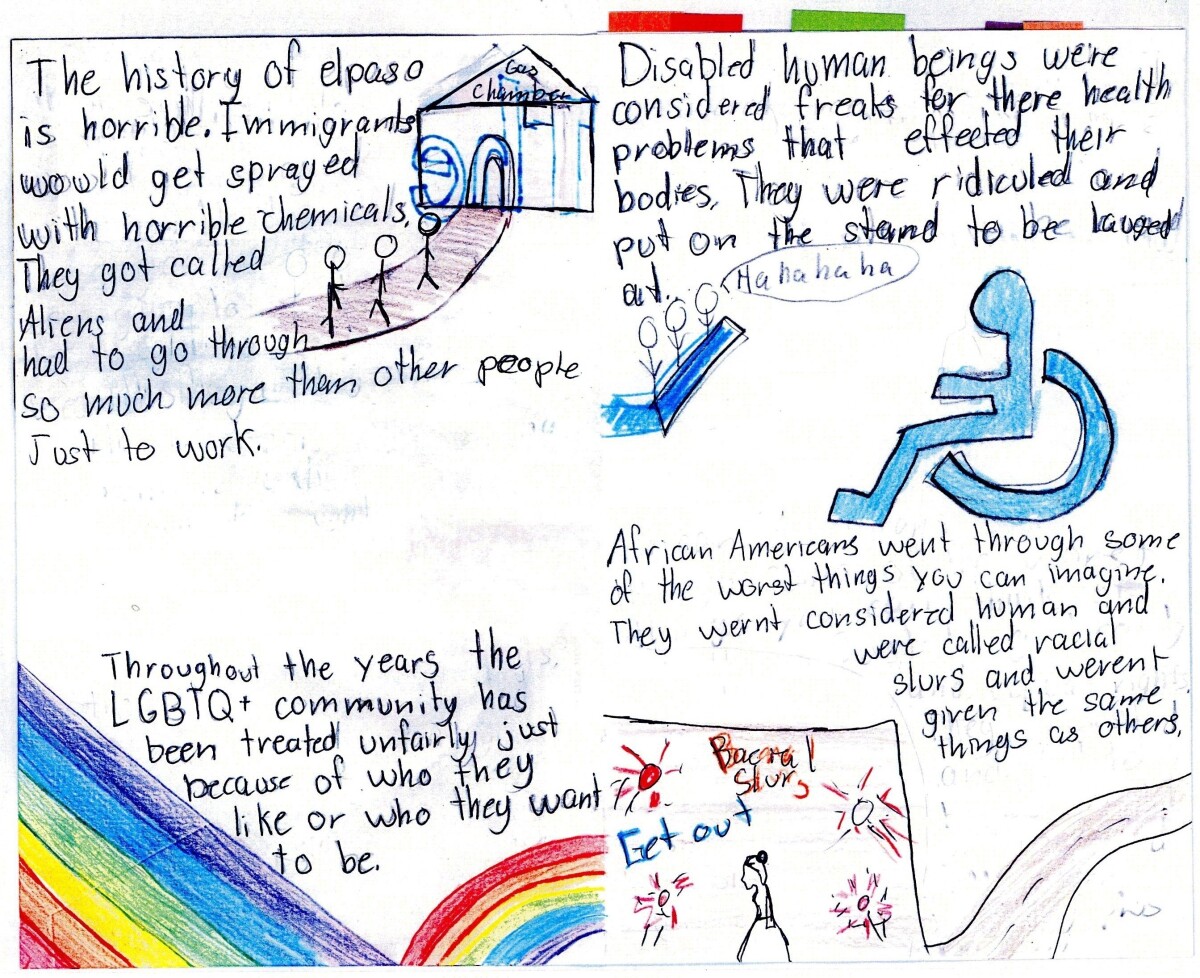 The history of elpaso
is horrible. Immigrants
would get sprayed
with horrible chemicals.
They got called
Aliens and
had to go through
so much more than other people
Just to work.
Gas
Chamber
Throughout the years the
LGBTQ+ community has
been treated unfairly just
because of who they
like or who they want
to be.
Disabled human beings were
considered freaks for there health
problems that effected their
bodies. They were ridiculed and
put on the stand to be lauged
at.
Hahahaha
African Americans went through some
of the worst things you can imagine.
They wernt considered human and
were called racial
slurs and werent
given the same
things as others.
Slurs
Get out